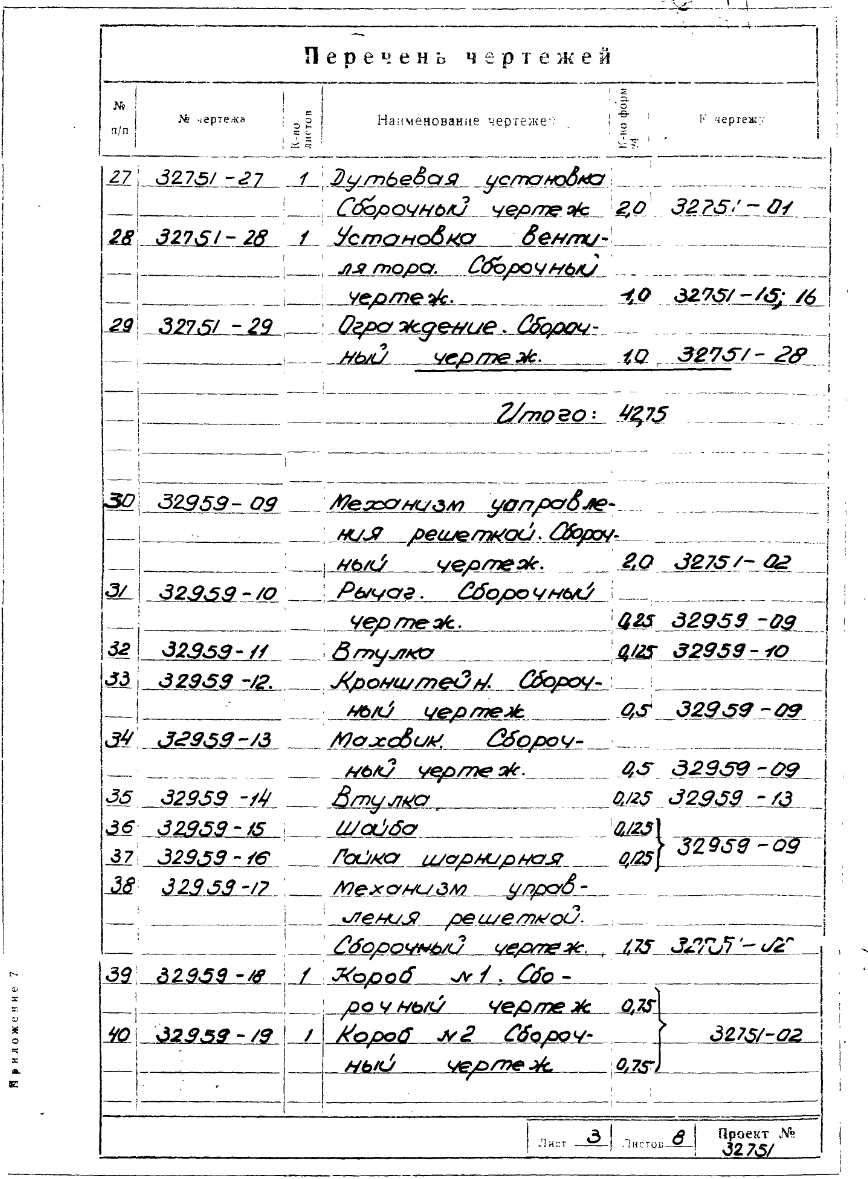 Перечень чертежей
№ п/п № чертежа К-во листов Наименование чертежей К-во форм К чертежу
27 32751-27 1 Дутьевая установка
Сборочный чертеж 2,0 32751-01
28 32751-28 1 Установка венти-
лятора. Сборочный
чертеж. 1,0 32751-15; 16
29 32751-29 Ограждение. Сбороч-
ный чертеж. 1,0 32751-28
Итого: 42,75
30 32959-09 Механизм уаправле-
ния решеткой. Сбороч-
ный чертеж. 2,0 32751-02
31 32959-10 Рычаг. Сборочный
чертеж. 0,25 32959-09
32 32959-11 Втулка 0,125 32959-10
33 32959-12. Кронштейн. Сбороч-
ный чертеж 0,5 32959-09
34 32959-13 Маховик. Сбороч-
ный чертеж. 0,5 32959-09
35 32959-14 Втулка 0,125 32959-13
36 32959-15 Шайба 0,125
32959-09
37 32959-16 Гайка шарнирная 0,125
38 32959-17 Механизм управ-
ления решеткой.
Сборочный чертеж. 1,75
39 32959-18 1 Короб №1. Сбо-
рочный чертеж 0,75
40 32959-19 1 Короб №2 Сбороч- 32751-02
ный чертеж 0,75
Лист 3 Листов 8 Проект №
32751
Приложение 7